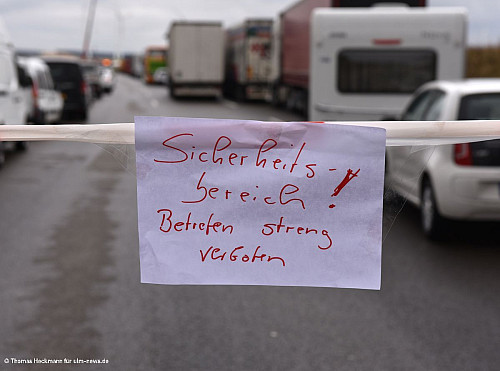 Sicherheits-
bereich !
Betreten streng
verboten
© Thomas Heckmann für ulm-news.de